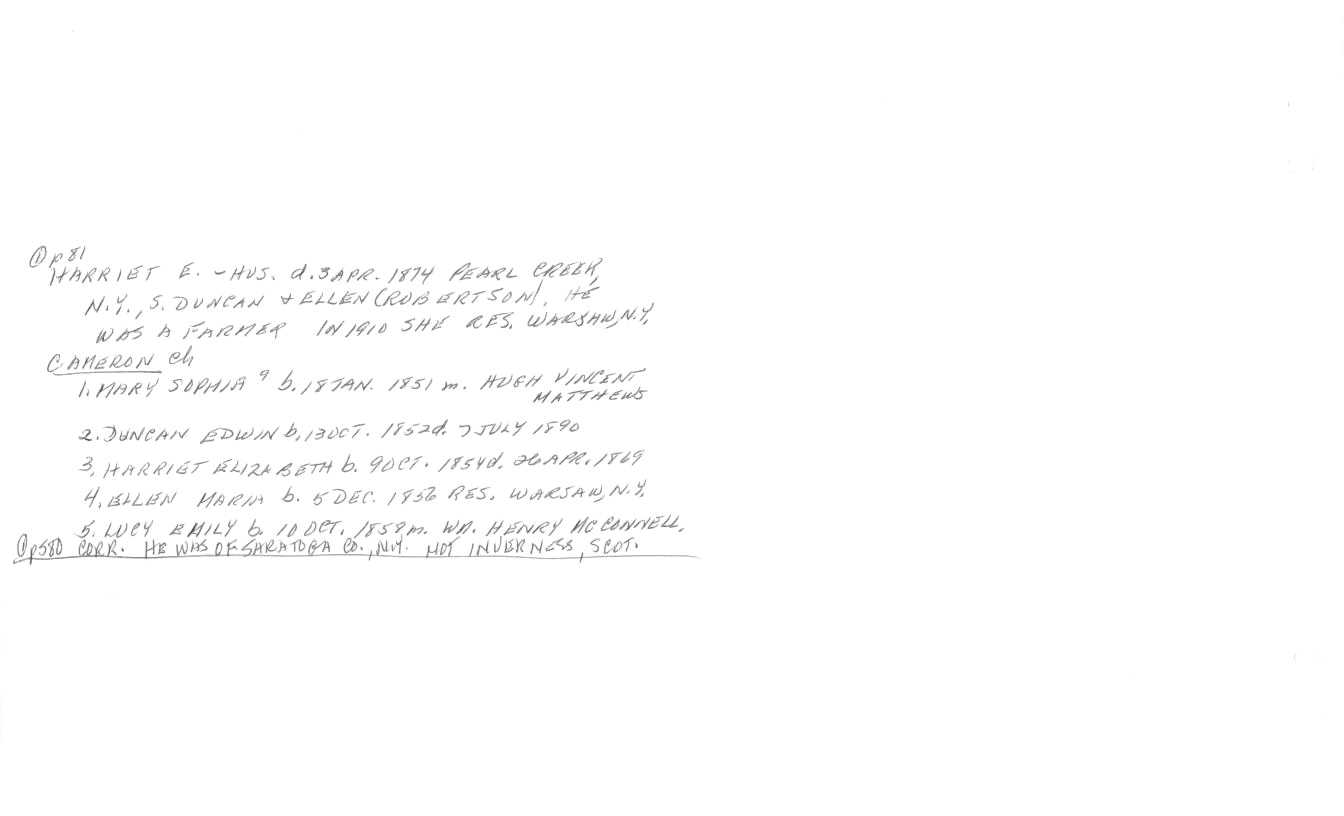 ① p 81
HARRIET E. - HUS. d. 3 APR. 1874 PEARL CREEK,
N.Y., S. DUNCAN + ELLEN (ROBERTSON). HE
WAS A FARMER IN 1910 SHE RES. WARSAW, N.Y.
CAMERON ch
1. MARY SOPHIA 9 b. 18 JAN. 1851 m. HUGH VINCENT
MATTHEWS
2. DUNCAN EDWIN b. 13 OCT. 1852 d. 7 JULY 1890
3. HARRIET ELIZABETH b. 9 OCT. 1854 d. 26 APR. 1869
4. ELLEN MARIA b. 5 DEC. 1856 RES. WARSAW, N.Y.
5. LUCY EMILY b. 10 OCT. 1858 m. WM. HENRY MCCONNELL.
① p580 CORR. HE WAS OF SARATOGA CO., N.Y. NOT INVERNESS, SCOT.